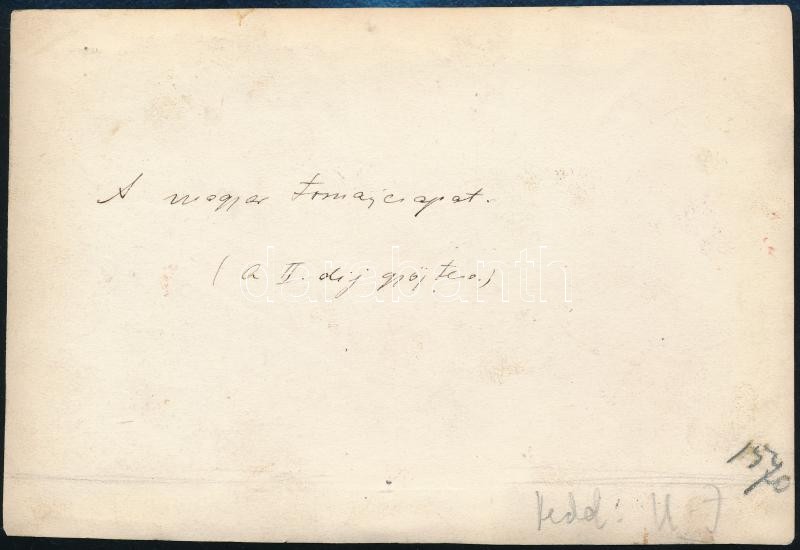 A magyar tornászcsapat.
(A II. díj győztese.)
darabanth
1540
kedd: